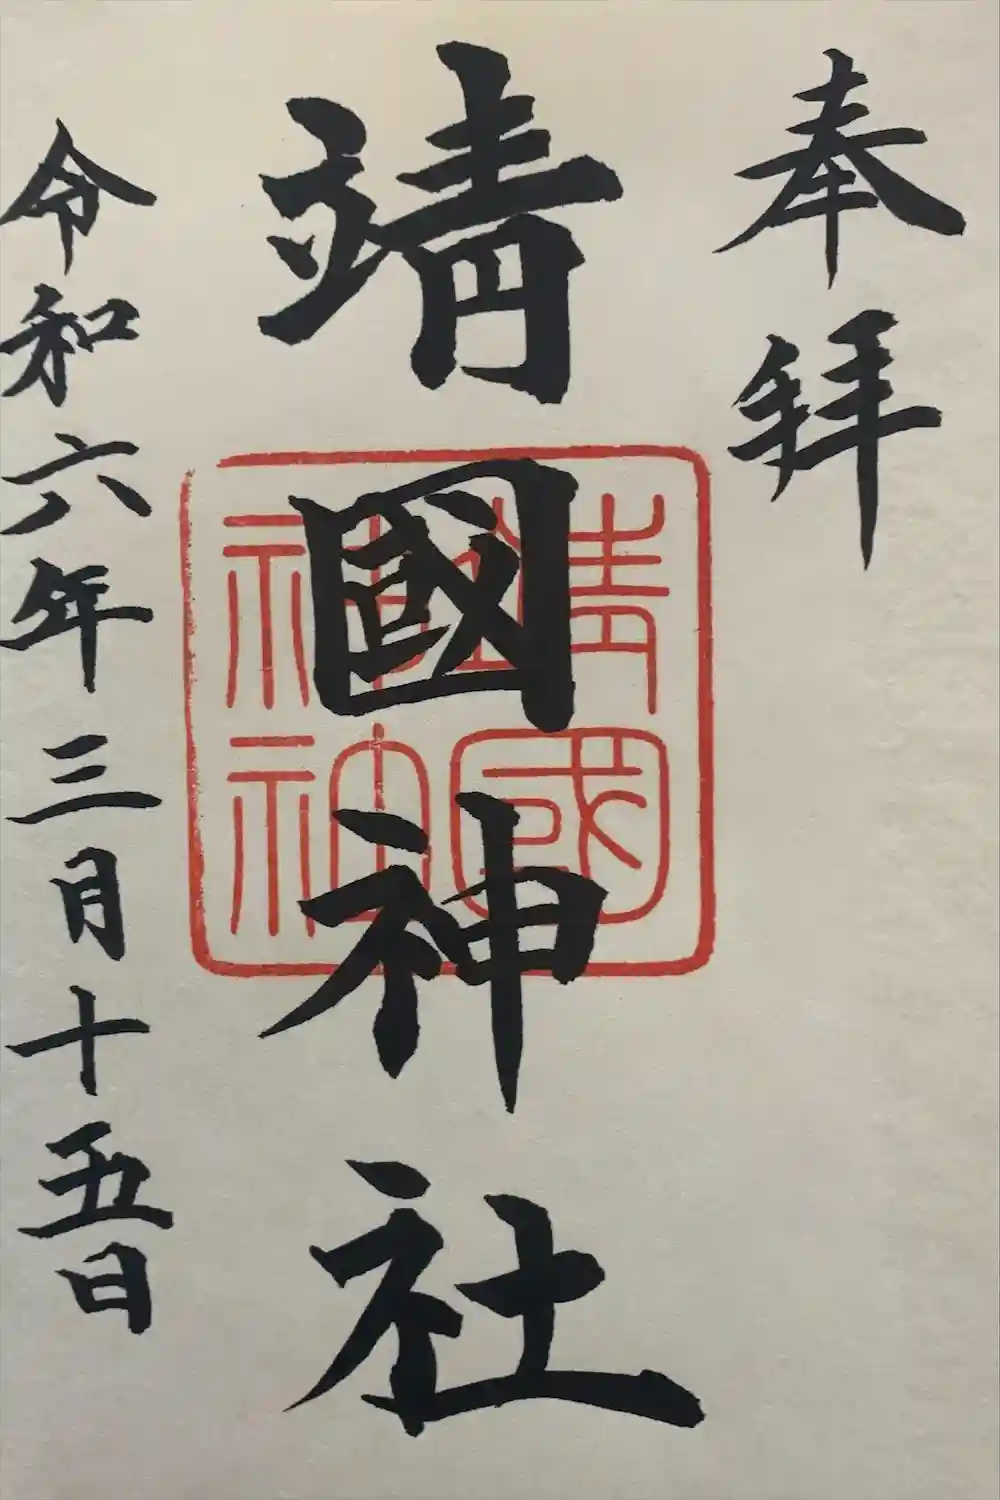 奉拝
靖國神社
靖國
神社
令和六年三月十五日